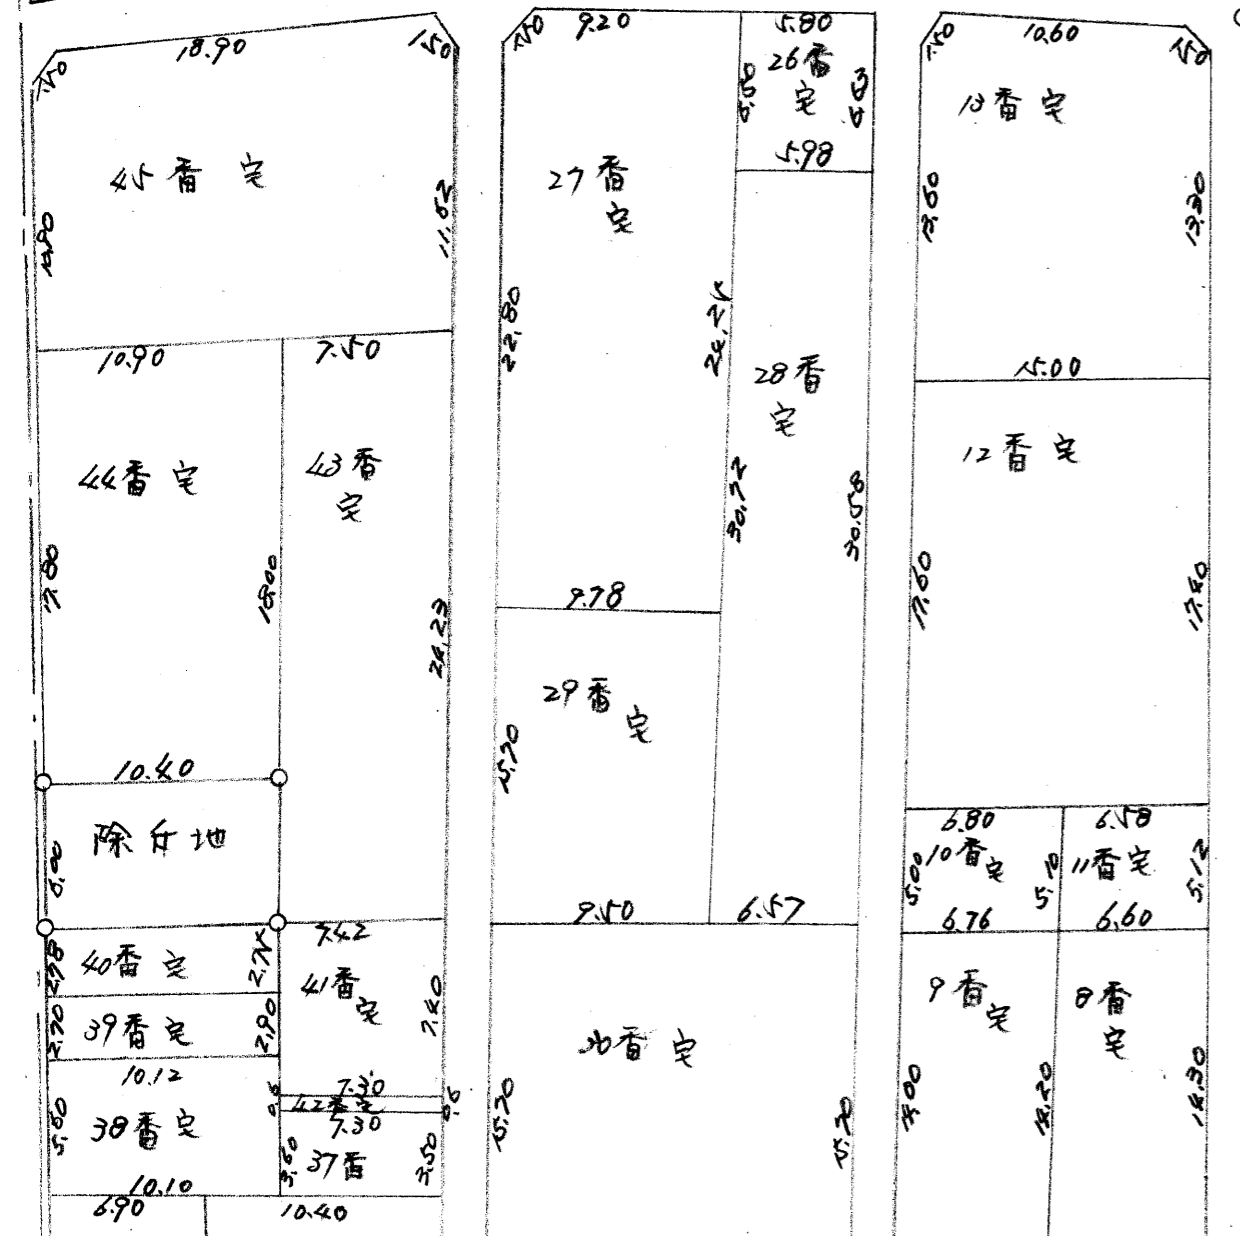 18.90
1.50
1.50
45番 宅
11.52
10.90
7.50
44番 宅
43番
宅
17.80
18.00
24.23
10.40
除斤地
6.00
7.42
2.98
40番 宅
2.75
41番
宅
7.40
2.70
39番宅
2.90
10.12
7.30
0.6
42番宅
0.6
7.30
5.60
38番宅
3.60
37番
3.50
10.10
6.90
10.40
1.50
9.20
5.80
26番
宅
5.98
27番
宅
22.80
24.25
28番
宅
30.72
30.58
9.78
29番
宅
15.70
9.50
6.57
番 宅
15.70
15.70
1.50
10.60
1.50
13番 宅
13.60
13.30
15.00
12番 宅
17.60
17.40
6.80
6.58
10番
宅
11番宅
5.00
5.10
5.12
6.76
6.60
9番
宅
8番
宅
14.00
14.20
14.30